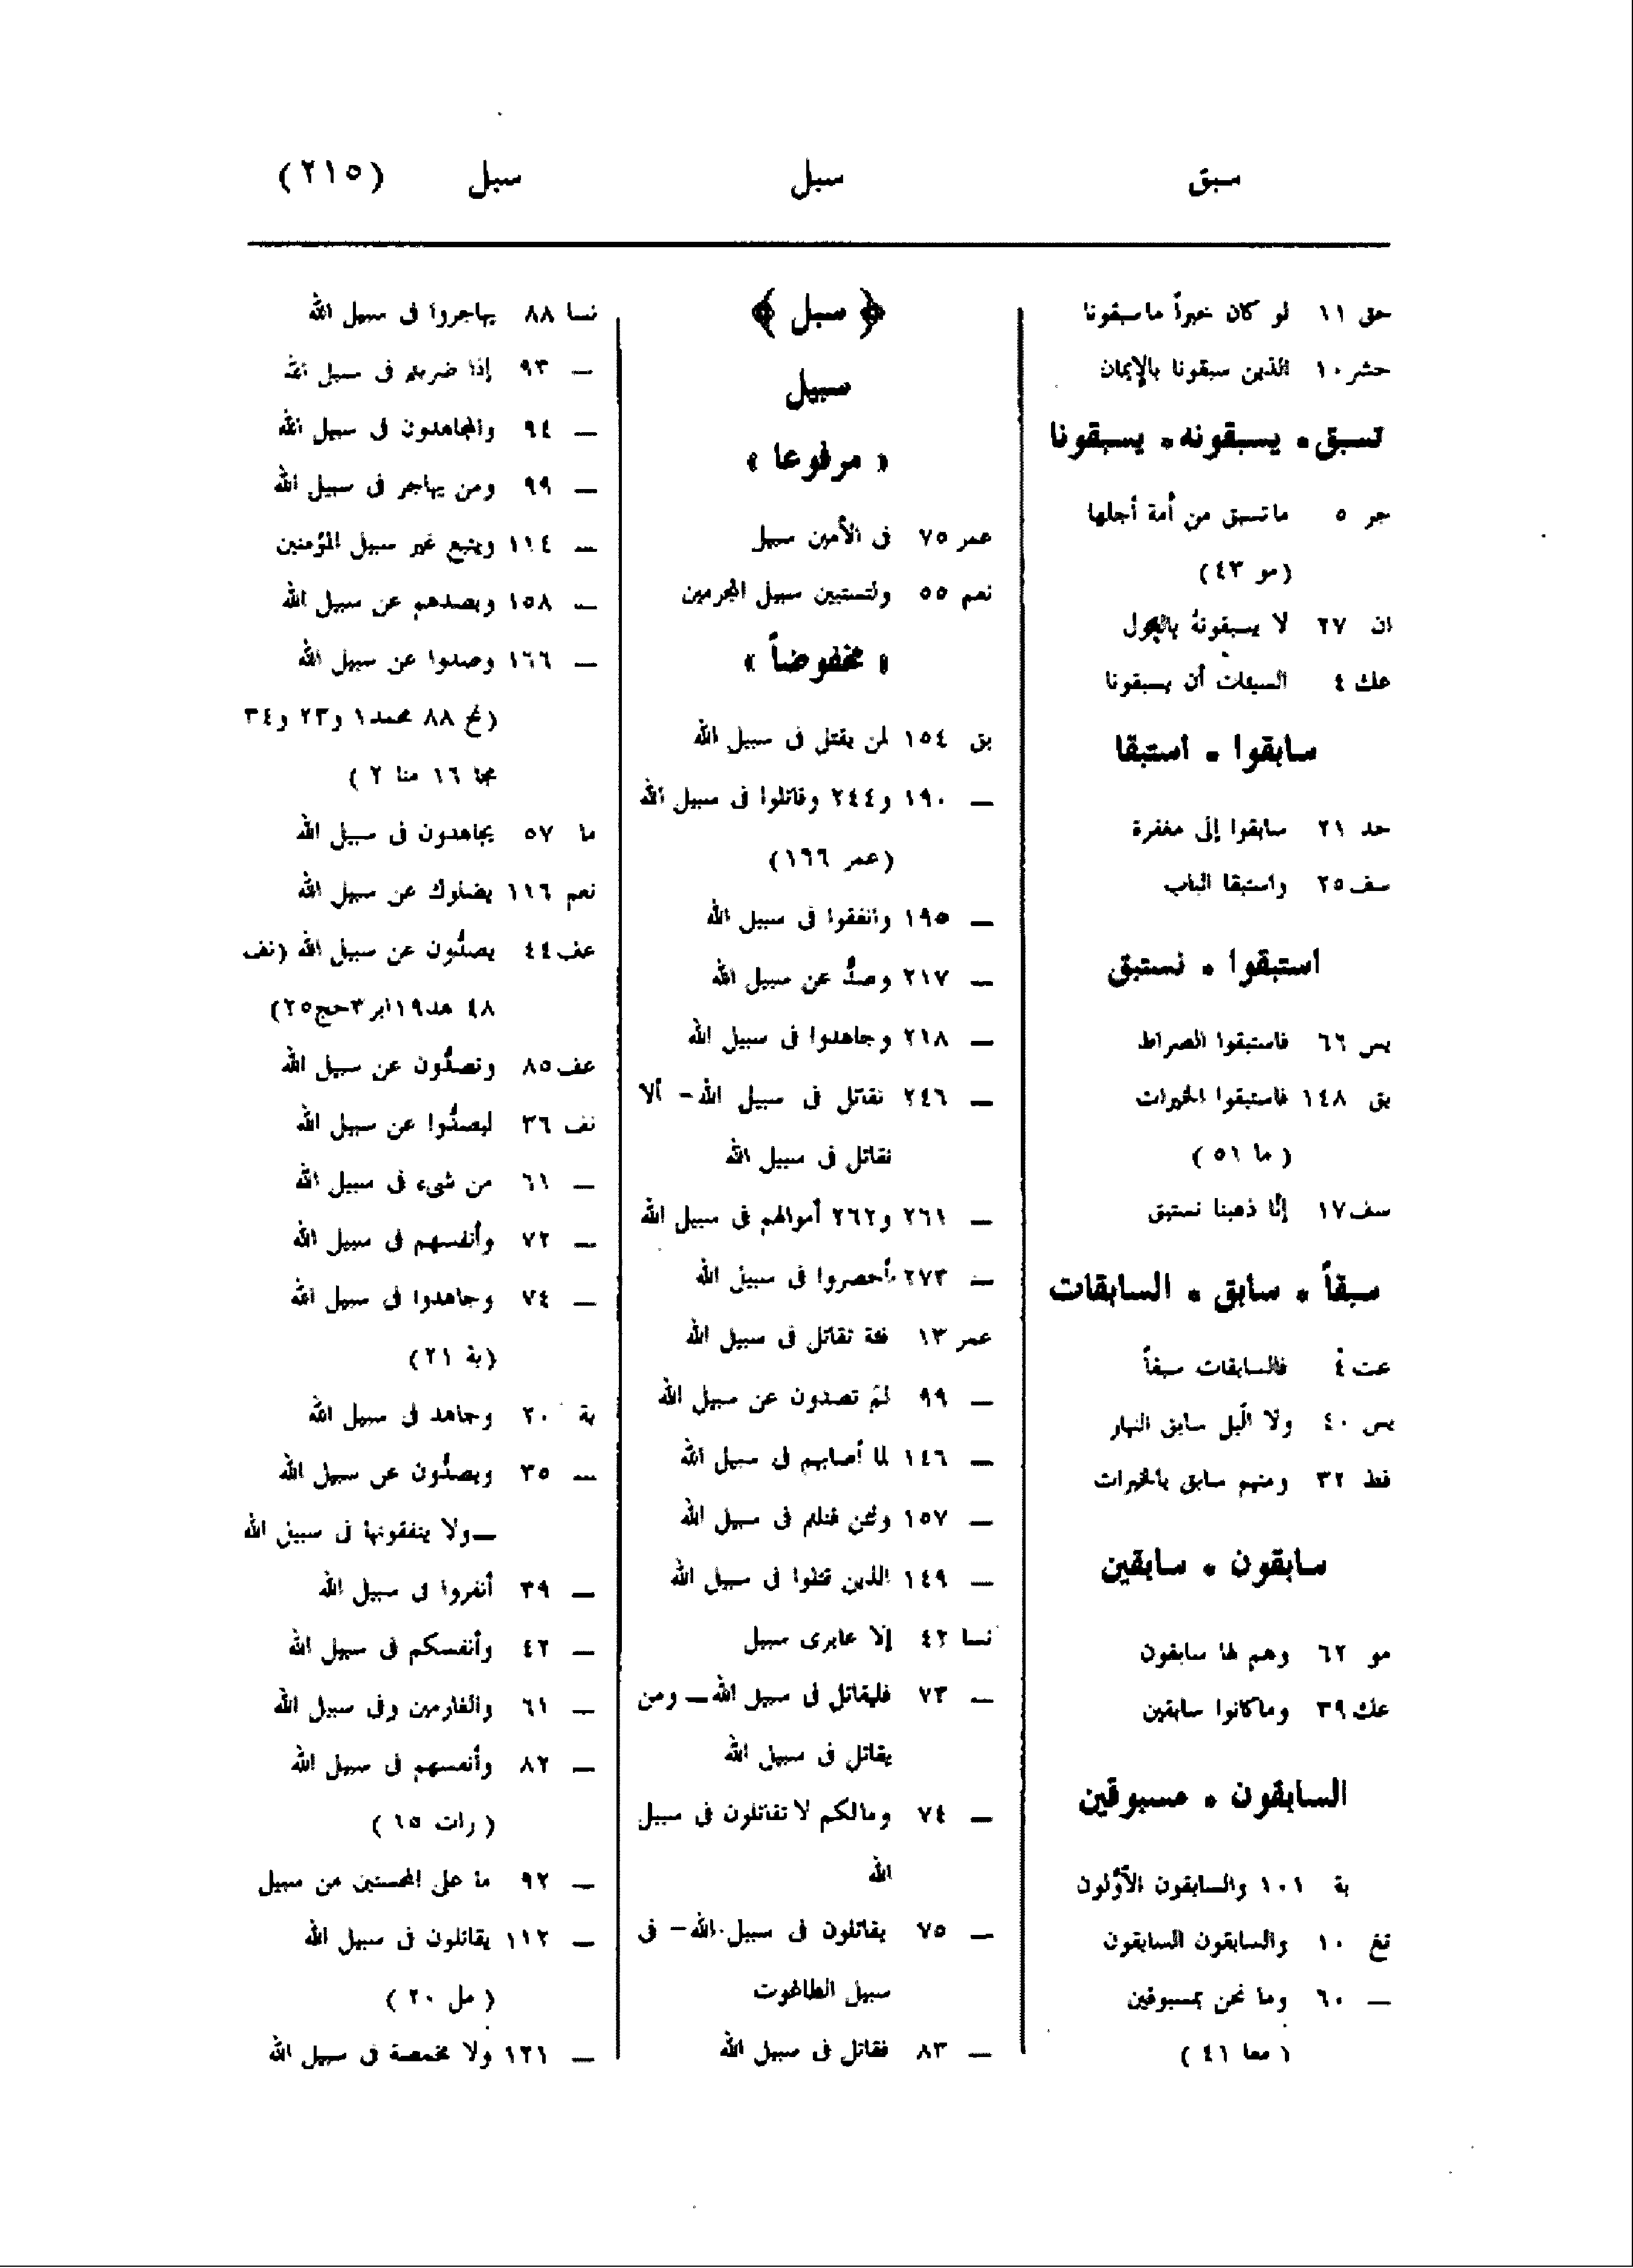 سبق سبل سبل (٢١٥)
حق ١١ لو كان خيراً ماسبقونا
حشر ١٠ الذين سبقونا بالإيمان
تسبق. يسبقونه. يسبقونا
حر ٥ ماتسبق من أمة أجلها
(مو ٤٣)
ان ٢٧ لا يسبقونهُ بالقول
عك ٤ السيئات أن يسبقونا
سابقوا . استبقا
حد ٢١ سابقوا إلى مغفرة
سف ٢٥ واستبقا الباب
استبقوا . نستبق
يس ٦٦ فاستبقوا الصراط
بق ١٤٨ فاستبقوا الخيرات
(ما ٥١)
سف ١٧ إنّا ذهبنا نستبق
سبقاً . سابق . السابقات
عت ٤ فالسابقات سبقاً
يس ٤٠ ولا الّيل سابق النهار
فط ٣٢ ومنهم سابق بالخيرات
سابقون . سابقين
مو ٦٢ وهم لها سابقون
عك ٣٩ وماكانوا سابقين
السابقون . مسبوقين
بة ١٠١ والسابقون الأوّلون
قع ١٠ والسابقون السابقون
— ٦٠ وما نحن بمسبوقين
(معا ٤١)
﴿ سبل ﴾
سبيل
« مرفوعا »
عمر ٧٥ فى الأمين سبيل
نعم ٥٥ ولتستبين سبيل المجرمين
« مخفوضاً »
بق ١٥٤ لمن يقتل فى سبيل الله
— ١٩٠ و٢٤٤ وقاتلوا فى سبيل الله
(عمر ١٦٦)
— ١٩٥ وانفقوا فى سبيل الله
— ٢١٧ وصدٌّ عن سبيل الله
— ٢١٨ وجاهدوا فى سبيل الله
— ٢٤٦ نقاتل فى سبيل الله - ألا
نقاتل فى سبيل الله
— ٢٦١ و٢٦٢ أموالهم فى سبيل الله
— ٢٧٣ أحصروا فى سبيل الله
عمر ١٣ فئة تقاتل فى سبيل الله
— ٩٩ لم تصدون عن سبيل الله
— ١٤٦ لما أصابهم فى سبيل الله
— ١٥٧ ولئن قتلتم فى سبيل الله
— ١٤٩ الذين قتلوا فى سبيل الله
نسا ٤٢ إلا عابرى سبيل
— ٧٣ فليقاتل فى سبيل الله — ومن
يقاتل فى سبيل الله
— ٧٤ ومالكم لا تقاتلون فى سبيل
الله
— ٧٥ يقاتلون فى سبيل الله - فى
سبيل الطاغوت
— ٨٣ فقاتل فى سبيل الله
نسا ٨٨ يهاجروا فى سبيل الله
— ٩٣ إذا ضربتم فى سبيل الله
— ٩٤ والمجاهدون فى سبيل الله
— ٩٩ ومن يهاجر فى سبيل الله
— ١١٤ ويتبع غير سبيل المؤمنين
— ١٥٨ وبصدهم عن سبيل الله
— ١٦٦ وصدوا عن سبيل الله
(نح ٨٨ محمد ١ و٢٣ و٣٤
مجا ١٦ منا ٢)
ما ٥٧ يجاهدون فى سبيل الله
نعم ١١٦ يضلوك عن سبيل الله
عف ٤٤ يصدُّون عن سبيل الله (نف
٤٨ هد ١٩ ابر ٣ حج ٢٥)
عف ٨٥ وتصدُّون عن سبيل الله
نف ٣٦ ليصدُّوا عن سبيل الله
— ٦١ من شىء فى سبيل الله
— ٧٢ وأنفسهم فى سبيل الله
— ٧٤ وجاهدوا فى سبيل الله
(بة ٢١)
بة ٢٠ وجاهد فى سبيل الله
— ٣٥ ويصدُّون عن سبيل الله
— ولا ينفقونها فى سبيل الله
— ٣٩ أنفروا فى سبيل الله
— ٤٢ وأنفسكم فى سبيل الله
— ٦١ والغارمين وفى سبيل الله
— ٨٢ وأنفسهم فى سبيل الله
(رات ١٥)
— ٩٢ ما على المحسنين من سبيل
— ١١٢ يقاتلون فى سبيل الله
(مل ٢٠)
— ١٢١ ولا مخمصة فى سبيل الله